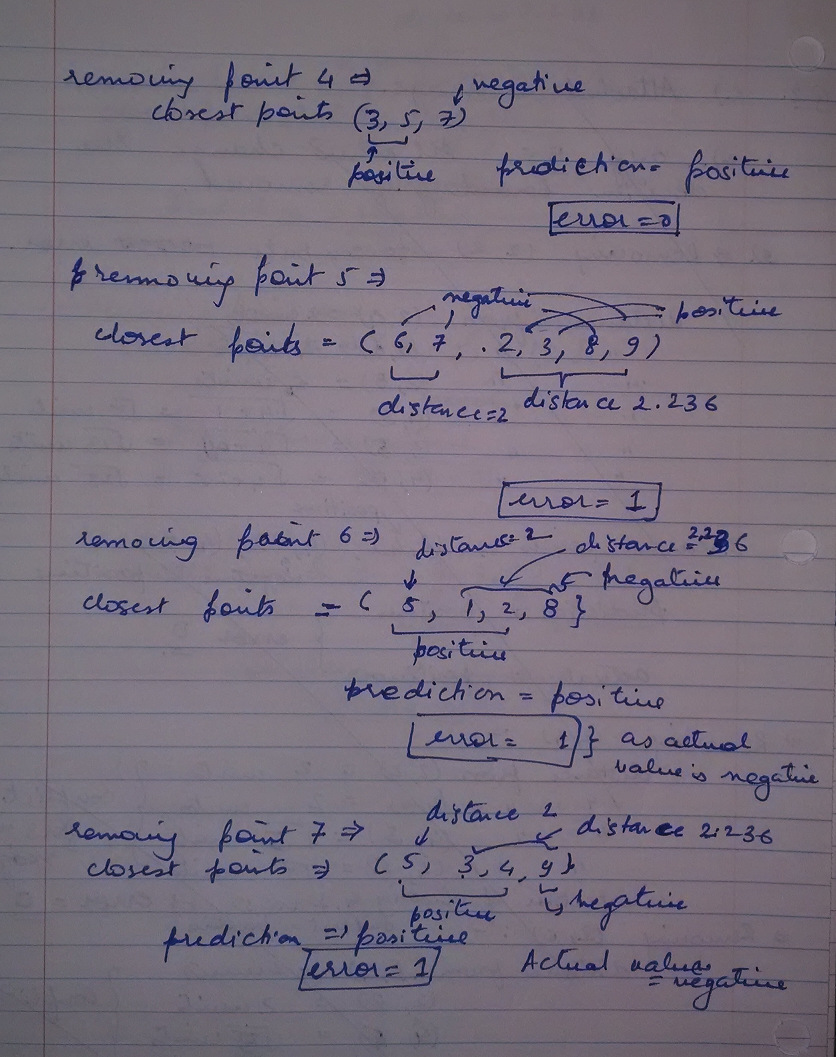 removing point 4 ⇒
negative
closest points (3, 5, 7)
positive prediction = positive
error = 0
removing point 5 ⇒
negative
positive
closest points = ( 6, 7, . 2, 3, 8, 9 )
distance = 2 distance 2.236
error = 1
removing point 6 ⇒ distance = 2 distance = 2.236
negative
closest points = ( 5, 1, 2, 8 }
positive
prediction = positive
error = 1 } as actual
value is negative
distance 2
removing point 7 ⇒ distance 2.236
closest points ⇒ ( 5, 3, 4, 9 }
positive negative
prediction ⇒ positive
error = 1 Actual value
= negative